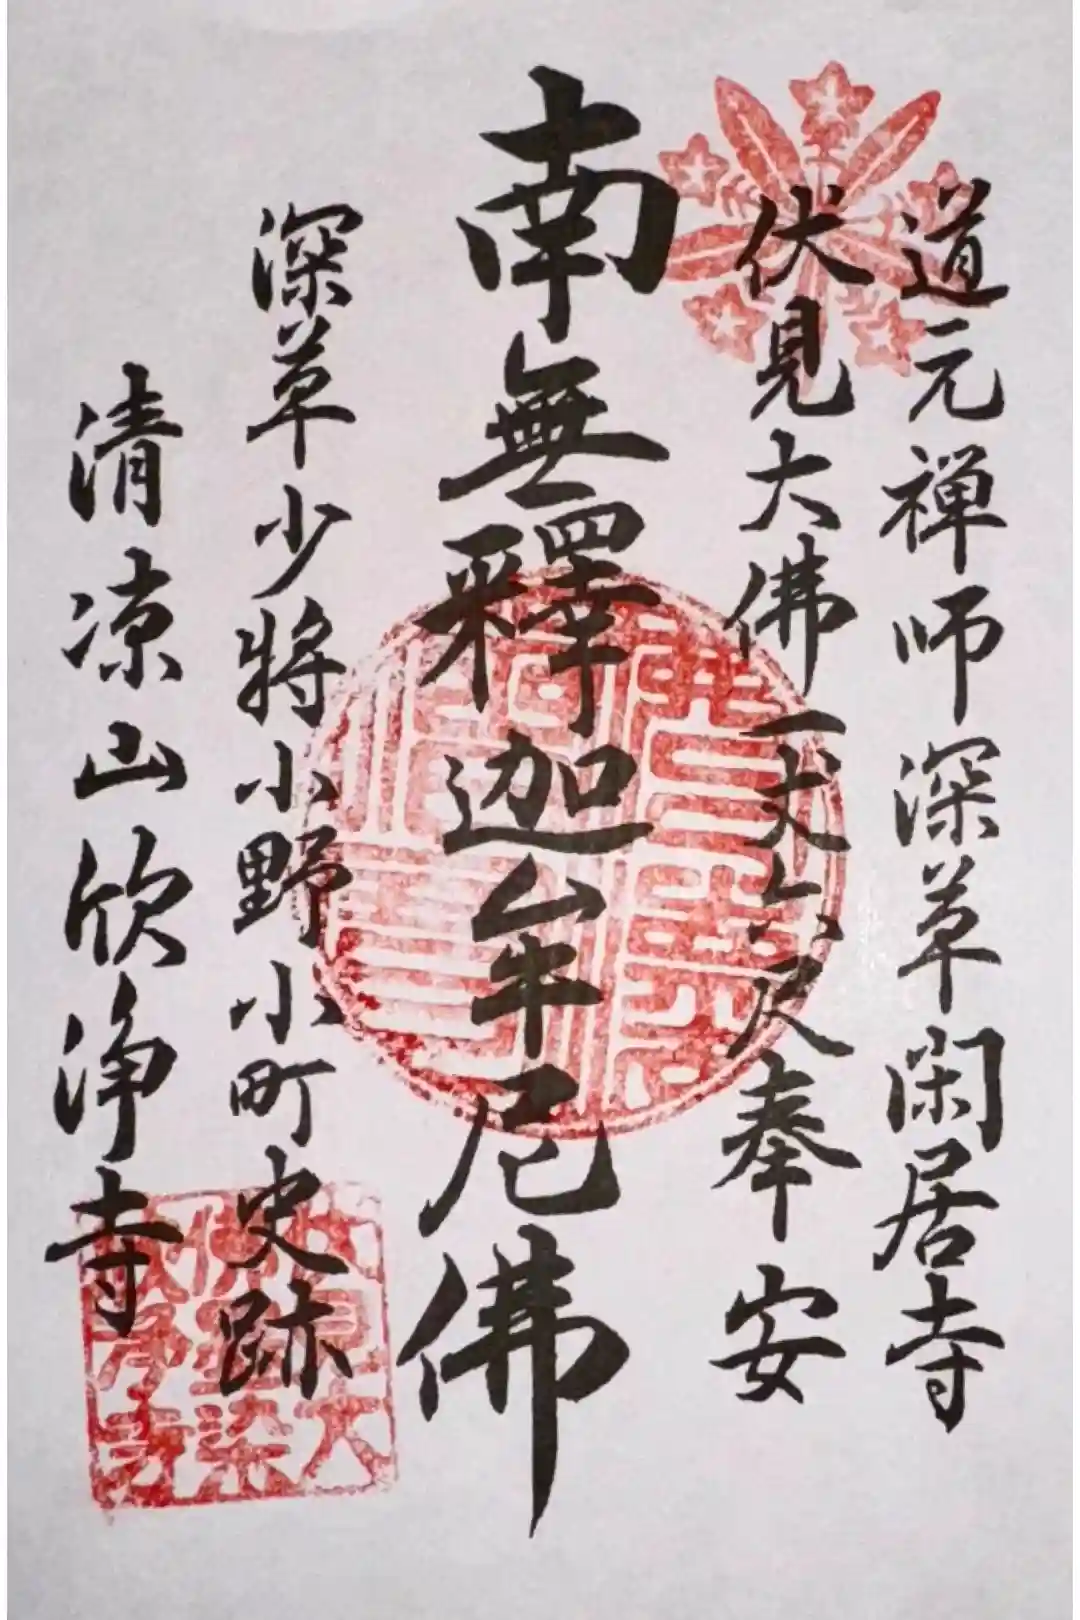 道元禅师深草閑居寺
伏見大佛一丈六尺奉安
南無釋迦牟尼佛
深草少将小野小町史跡
清凉山欣浄寺